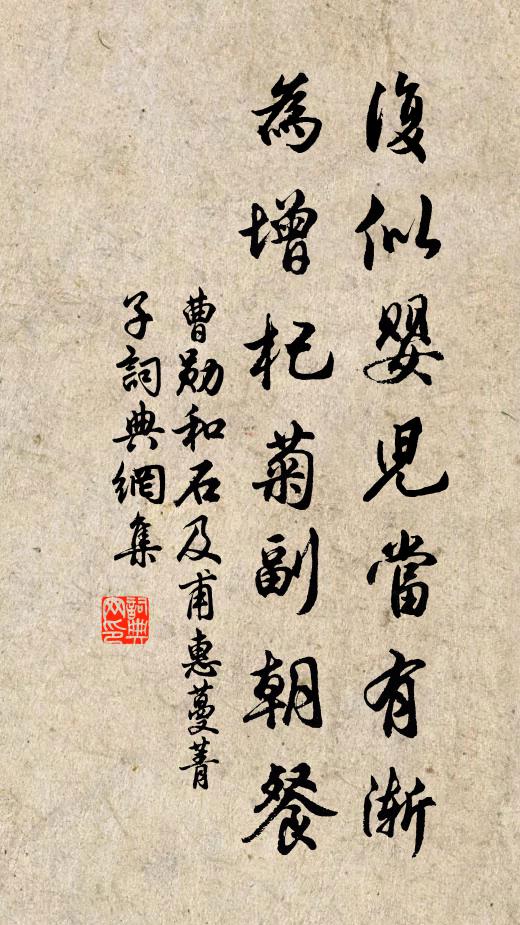 復似嬰兒當有漸
為增杞菊副朝餐
曹勛和石及甫惠蔓菁
子詞典網集
詞典
網印